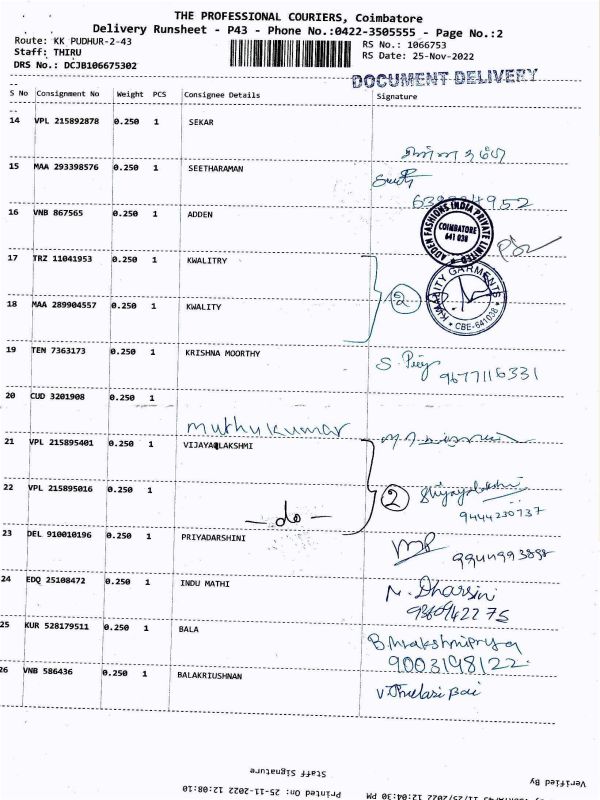 THE PROFESSIONAL COURIERS, Coimbatore
Delivery Runsheet - P43 - Phone No.:0422-3505555 - Page No.:2
Route: KK PUDHUR-2-43
RS No.: 1066753
Staff: THIRU
RS Date: 25-Nov-2022
DRS No.: DCJB106675302
DOCUMENT DELIVERY
S No Consignment No Weight PCS Consignee Details Signature
14 VPL 215892878 0.250 1 SEKAR
15 MAA 293398576 0.250 1 SEETHARAMAN
16 VNB 867565 0.250 1 ADDEN
ADDEN FASHIONS INDIA PRIVATE LIMITED
COIMBATORE
641 038
17 TRZ 11041953 0.250 1 KWALITRY
2
KWALITY GARMENTS
CBE-641038
18 MAA 289904557 0.250 1 KWALITY
19 TEN 7363173 0.250 1 KRISHNA MOORTHY
9677116331
20 CUD 3201908 0.250 1
muthukumar
21 VPL 215895401 0.250 1 VIJAYALAKSHMI
22 VPL 215895016 0.250 1
- do -
2
9444230737
23 DEL 910010196 0.250 1 PRIYADARSHINI
24 EDQ 25108472 0.250 1 INDU MATHI
N. Dharsini
25 KUR 528179511 0.250 1 BALA
9003198122
26 VNB 586436 0.250 1 BALAKRIUSHNAN
V.Thulasi Bai
Staff Signature
Verified By
Printed On: 25-11-2022 12:08:10
11/25/2022 12:04:30 PM